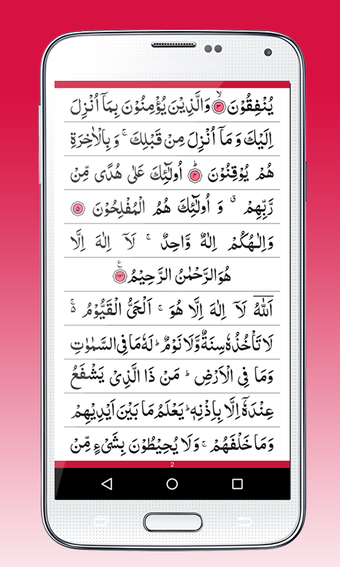 يُنْفِقُوْنَ ۙ﴿۳﴾ وَالَّذِيْنَ يُؤْمِنُوْنَ بِمَاۤ اُنْزِلَ
اِلَيْكَ وَمَاۤ اُنْزِلَ مِنْ قَبْلِكَ ۚ وَبِالْاٰخِرَةِ
هُمْ يُوْقِنُوْنَ ؕ﴿۴﴾ اُولٰٓئِكَ عَلٰى هُدًى مِّنْ
رَّبِّهِمْ ۗ وَ اُولٰٓئِكَ هُمُ الْمُفْلِحُوْنَ ﴿۵﴾
وَاِلٰـهُكُمْ اِلٰهٌ وَّاحِدٌ ۚ لَاۤ اِلٰهَ اِلَّا
هُوَالرَّحْمٰنُ الرَّحِيْمُ
اَللّٰهُ لَاۤ اِلٰهَ اِلَّا هُوَ ۚ اَلْحَىُّ الْقَيُّوْمُ ۚ
لَا تَاْخُذُهٗ سِنَةٌ وَّلَا نَوْمٌ ؕ لَهٗ مَا فِى السَّمٰوٰتِ
وَمَا فِى الْاَرْضِ ؕ مَنْ ذَا الَّذِىْ يَشْفَعُ
عِنْدَهٗۤ اِلَّا بِاِذْنِهٖ ؕ يَعْلَمُ مَا بَيْنَ اَيْدِيْهِمْ
وَمَا خَلْفَهُمْ ۚ وَلَا يُحِيْطُوْنَ بِشَىْءٍ مِّنْ
2